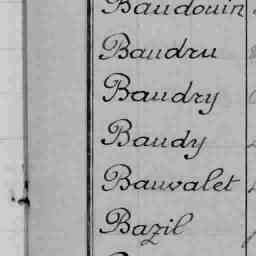 Baudouin
Baudru
Baudry
Baudy
Bauvalet
Bazil